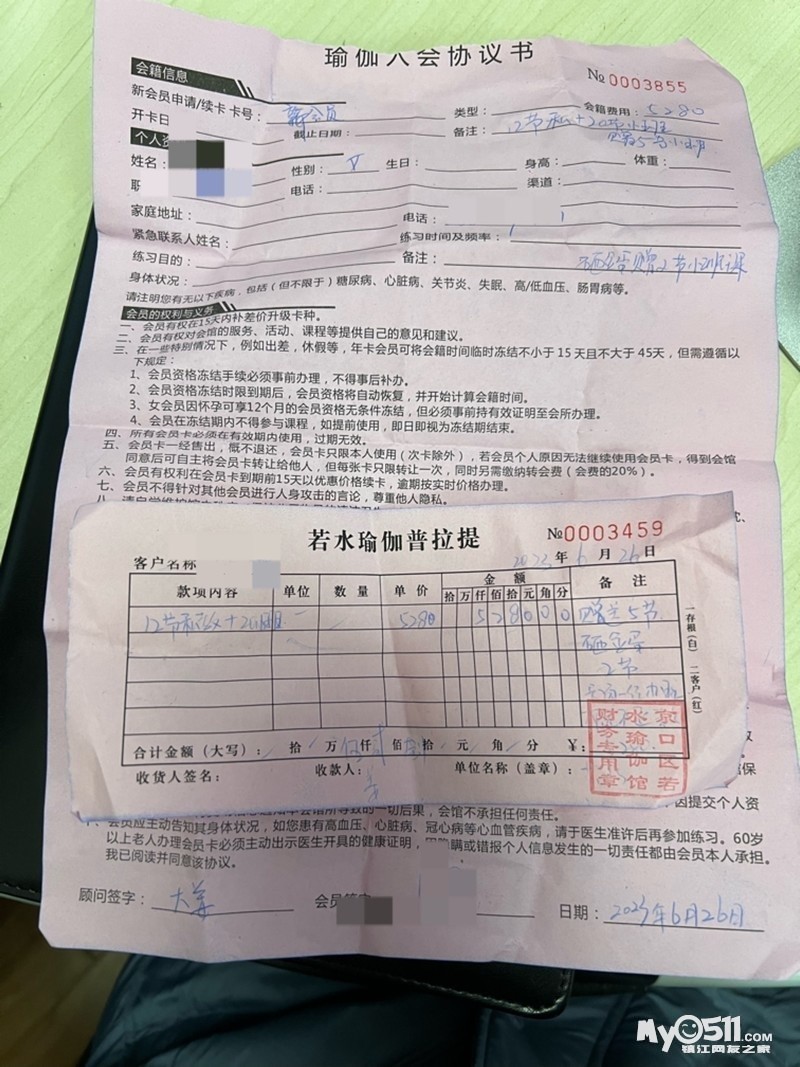 瑜伽入会协议书
№0003855
会籍信息
新会员申请/续卡 卡号：新会员 类型： 会籍费用：5280
开卡日 截止日期： 备注：12节私+20节小班
赠5节小班
个人资
姓名： 性别：女 生日： 身高： 体重：
电话： 渠道：
家庭地址： 电话：
紧急联系人姓名： 练习时间及频率：
练习目的： 备注： 晒单赠2节小班课
身体状况：
请注明您有无以下疾病，包括（但不限于）糖尿病、心脏病、关节炎、失眠、高/低血压、肠胃病等。
会员的权利与义务
一、会员有权在15天内补差价升级卡种。
二、会员有权对会馆的服务、活动、课程等提供自己的意见和建议。
三、在一些特别情况下，例如出差，休假等，年卡会员可将会籍时间临时冻结不小于 15 天且不大于 45天，但需遵循以
下规定：
1、会员资格冻结手续必须事前办理，不得事后补办。
2、会员资格冻结时限到期后，会员资格将自动恢复，并开始计算会籍时间。
3、女会员因怀孕可享12个月的会员资格无条件冻结，但必须事前持有效证明至会所办理。
4、会员在冻结期内不得参与课程，如提前使用，即日即视为冻结期结束。
四、所有会员卡必须在有效期内使用，过期无效。
五、会员卡一经售出，概不退还，会员卡只限本人使用（次卡除外），若会员个人原因无法继续使用会员卡，得到会馆
同意后可自主将会员卡转让给他人，但每张卡只限转让一次，同时另需缴纳转会费（会费的20%）。
六、会员有权利在会员卡到期前15天以优惠价格续卡，逾期按实时价格办理。
七、会员不得针对其他会员进行人身攻击的言论，尊重他人隐私。
若水瑜伽普拉提
№0003459
客户名称 2023年6月26日
款项内容 单位 数量 单价 金额 备注
拾万仟佰拾元角分
12节私教+20小班 5280 528000 赠送5节
晒单
2节
一存根（白） 二客户（红）
合计金额（大写）： 拾 万 仟 佰 拾 元 角 分 ¥：
收货人签名： 收款人： 单位名称（盖章）：
京口区若水瑜伽馆财务专用章
保
因提交个人资
所导致的一切后果，会馆不承担任何责任。
会员应主动告知其身体状况，如您患有高血压、心脏病、冠心病等心血管疾病，请于医生准许后再参加练习。60岁
以上老人办理会员卡必须主动出示医生开具的健康证明，因隐瞒或错报个人信息发生的一切责任都由会员本人承担。
我已阅读并同意该协议。
顾问签字：大美 会员签字 日期：2023年6月26日
My0511.COM
镇江网友之家